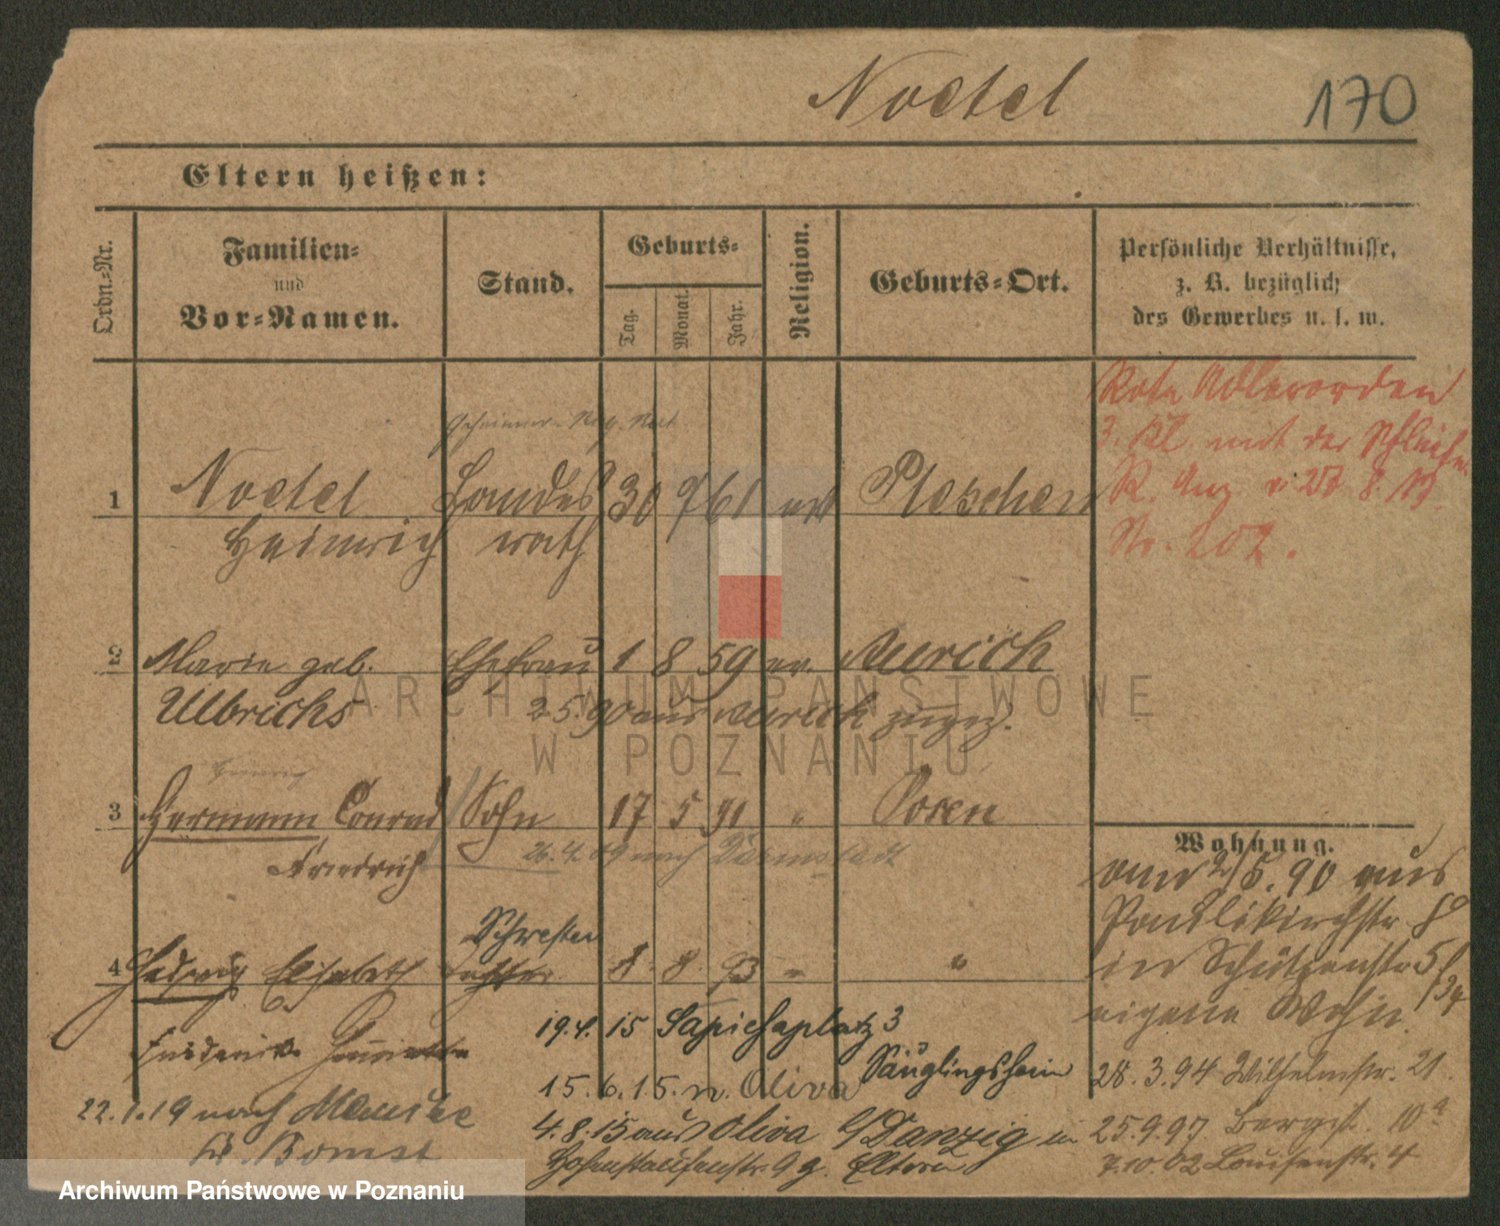 Noetel
170
Eltern heißen:
Ordn.-Nr.
Familien-
und
Vor-Namen.
Stand.
Geburts-
Tag.
Monat.
Jahr.
Religion.
Geburts-Ort.
Persönliche Verhältnisse,
z. B. bezüglich
des Gewerbes u. s. w.
Rote Adlerorden
3. Kl. mit der Schleife
R. Anz. v 28 8. 13.
Nr. 202.
Geheimer Reg. Rat
1 Noetel Landes 30 9 61 ev Pleschen
Heinrich rath
2 Marie geb. Ehefrau 1 8 59 ev. Aurich
Ulbrichs 2 5. 90 aus Aurich zugez.
Heinrich
3 Hermann Conrad Sohn 17 5 91 " Posen
Friedrich 26. 4. 09 nach Darmstadt
Schwester
4 Hedwig Elisabeth Tochter 8 8 93 " "
Friederike Henriette
22. 1. 19 nach
Kr. Bomst
19. 4. 15 Sapiehaplatz 3
Säuglingsheim
15. 6. 15. n. Oliva
4. 8. 15 aus Oliva b/Danzig in
Hohenstaufenstr. 9 z. Eltern
Wohnung.
vom 2/5. 90 aus
Paulikirchstr. 8
in Schützenstr
eigene Wohn.
28. 3. 94 Wilhelmstr. 21.
25. 9. 97 Bergstr. 10a
7. 10. 02 Louisenstr. 4
ARCHIWUM PAŃSTWOWE
W POZNANIU
Archiwum Państwowe w Poznaniu